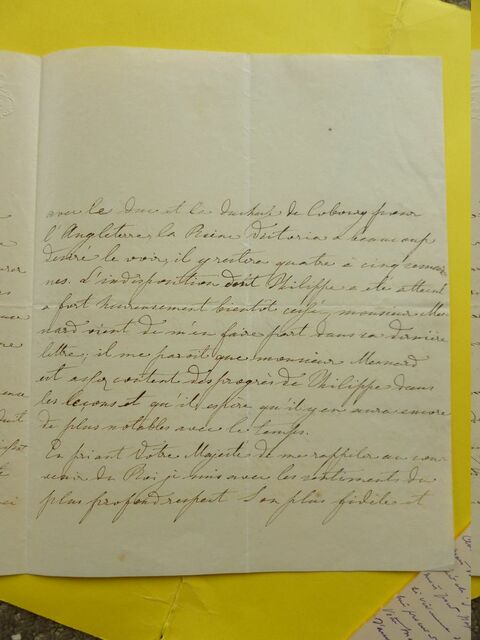 avec le Duc et la Duchesse de Cobourg pour
l'Angleterre, la Reine Victoria a beaucoup
désiré le voir, il y restera quatre à cinq semai
nes. L'indisposition dont Philippe a été atteint
a fort heureusement bientôt cessé, monsieur Me
nard vient de m'en faire part dans sa dernière
lettre, il me parait que monsieur Menard
est assez content des progrès de Philippe dans
les leçons et qu'il espère qu'il y en aura encore
de plus notables avec le temps.
En priant Votre Majesté de me rappeler au sou
venir du Roi je suis avec les sentiments du
plus profond respect Son plus fidèle et